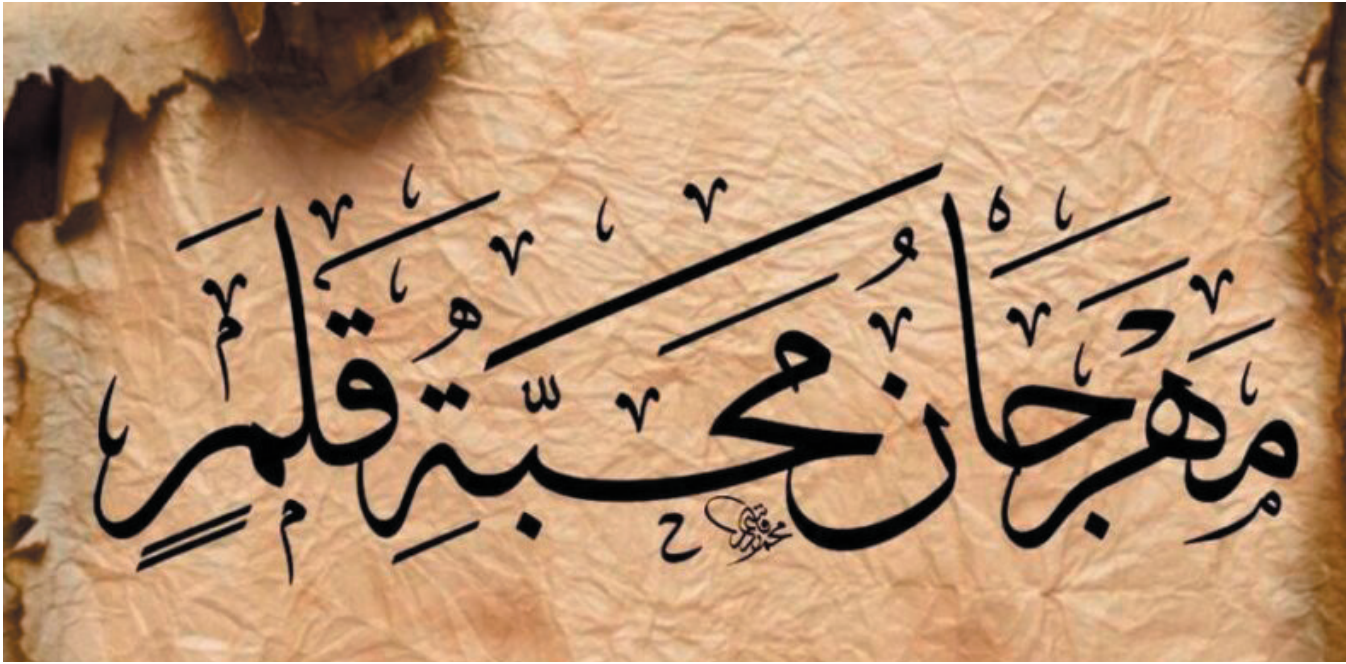 مَهْرَجَانُ مَحَبَّةِ قَلَمٍ